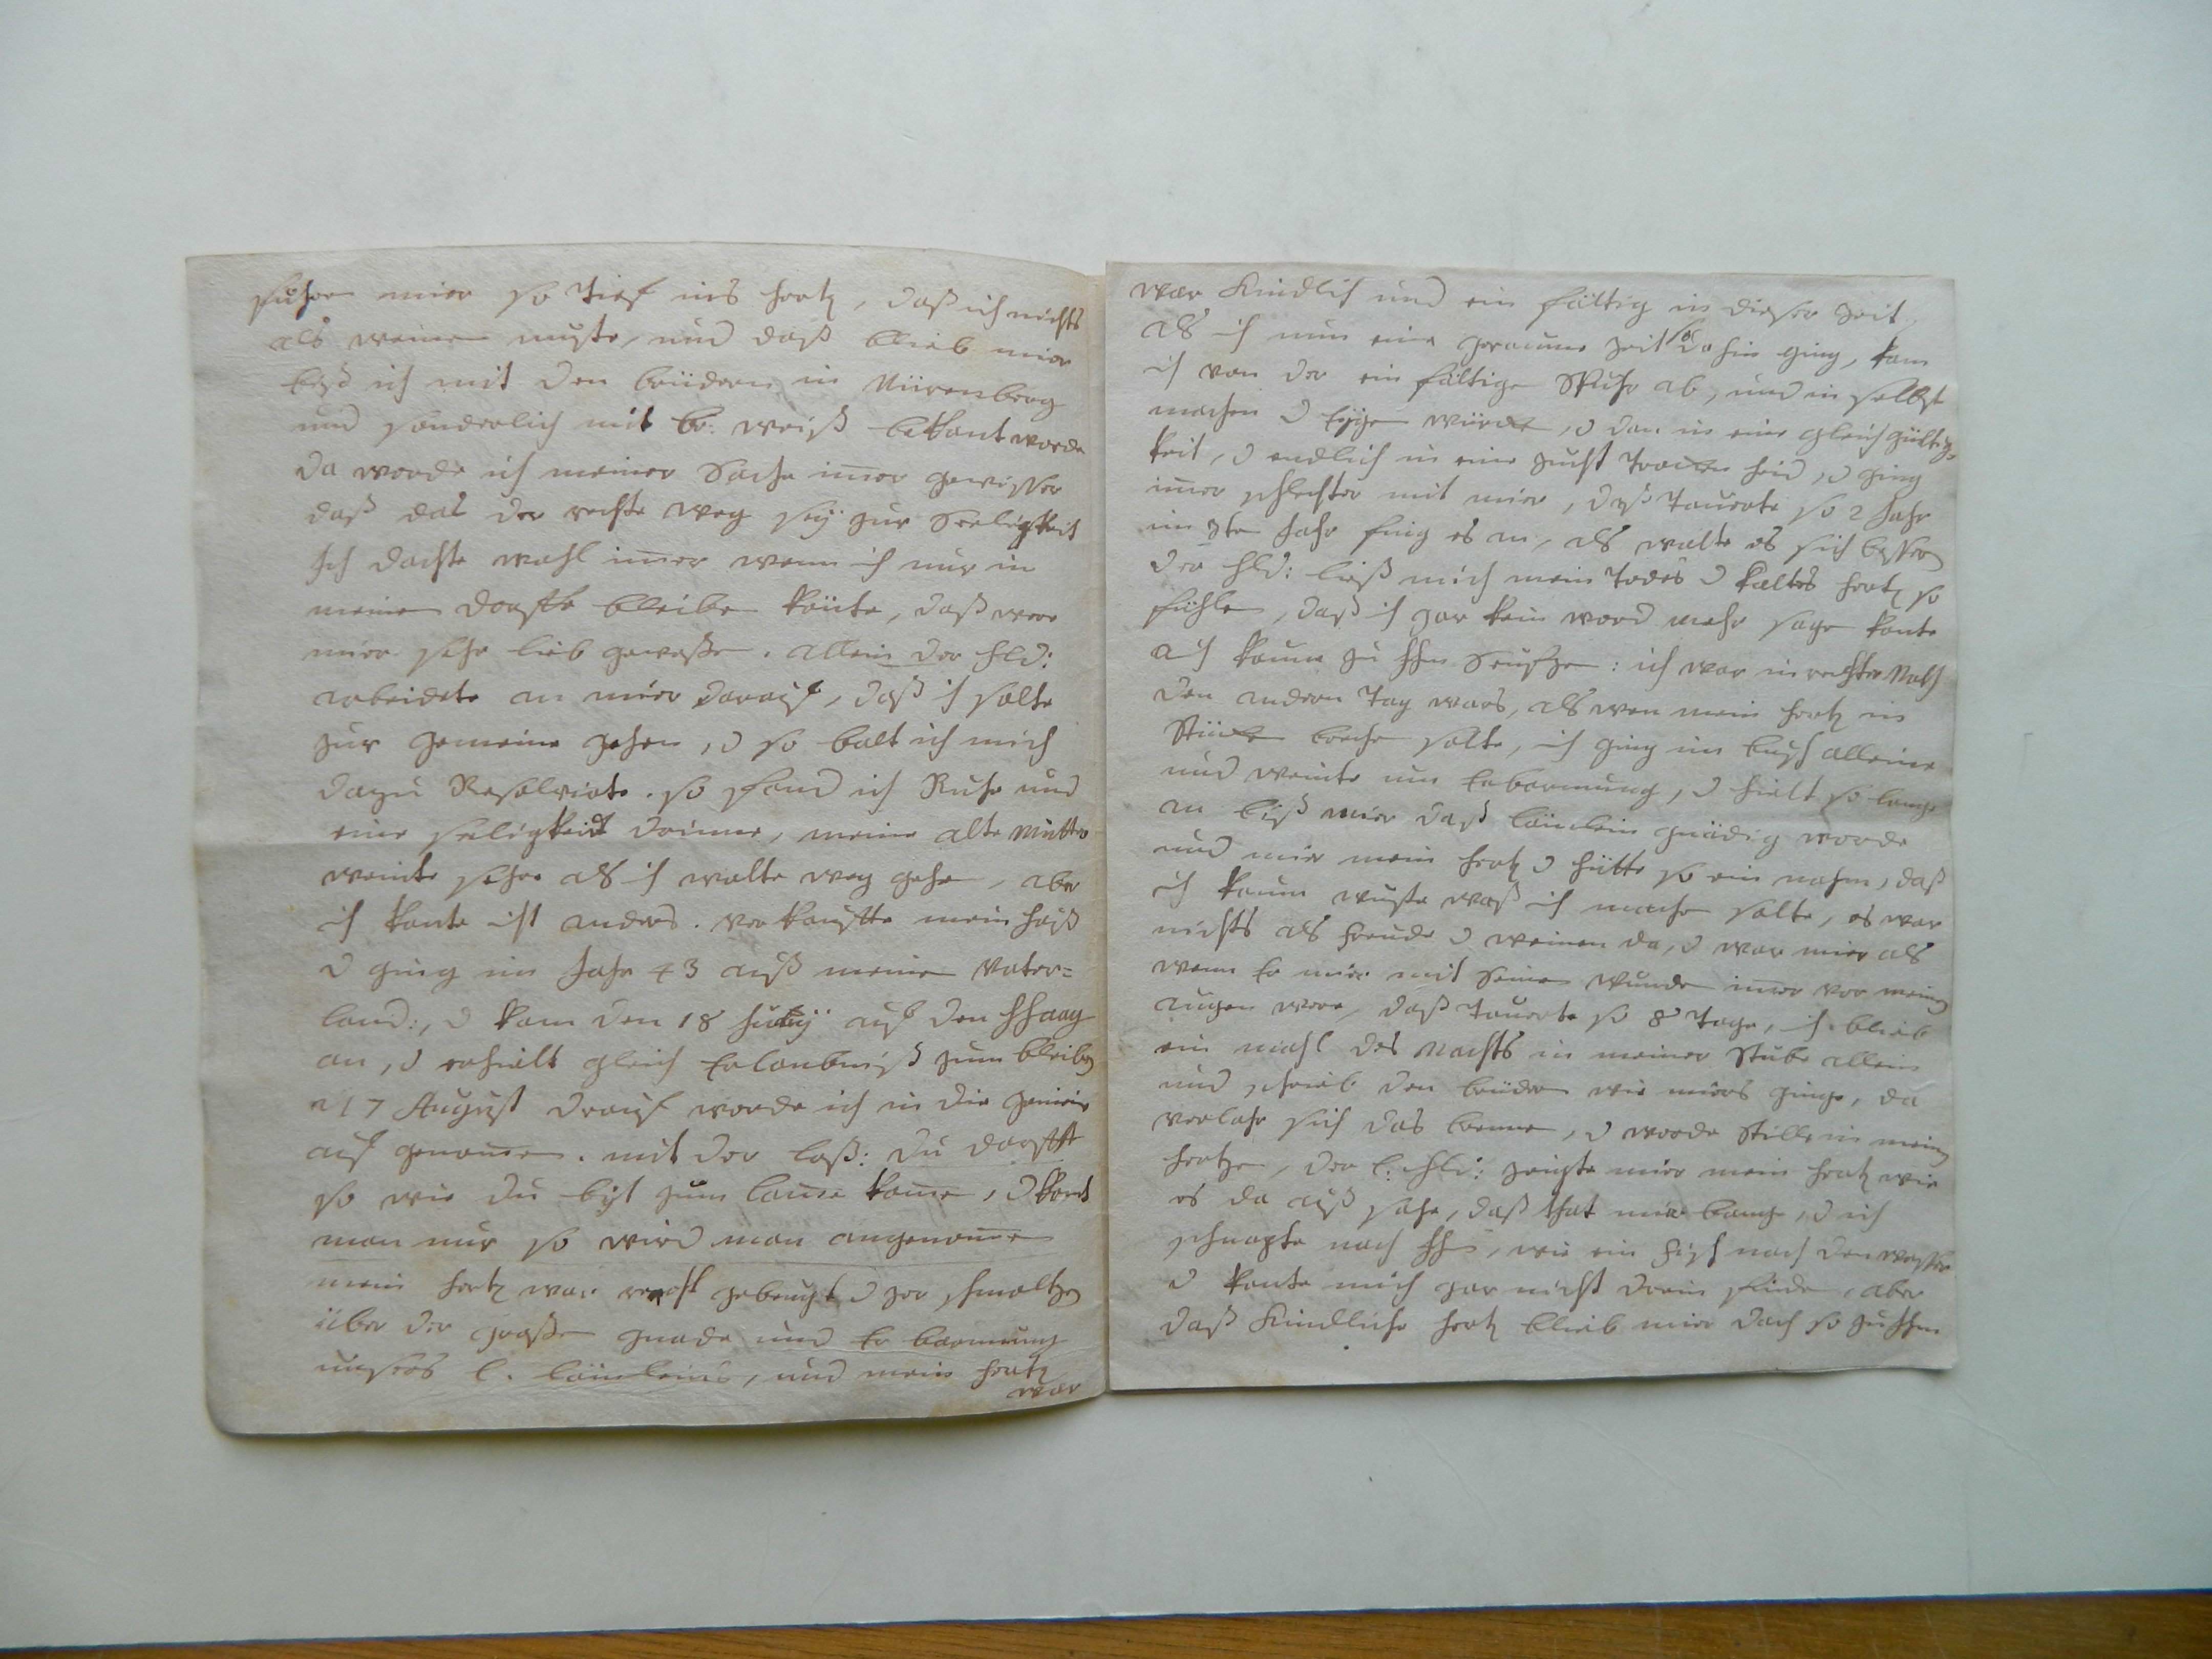 fuhre mier so Tief ins hertz, daß ich nichts
als weinen muste, und daß blieb mier
biß ich mit den brüdern in Nürenberg
und sonderlich mit br: weiß bekant worde
da worde ich meiner Sache im̅er gewisser
daß das der rechte weg seÿ zur Seeligkeit
Ich dachte wohl im̅er wenn ich nur in
meinen dorffe bleiben könte, daß were
mier sehr lieb geweßen. allein der hld:
arbeidete an mier darauf, daß ich solte
zur gemeine gehen, d so balt ich mich
dazu Resolvirte. so fand ich Ruhe und
eine seligkeit drinne, meine alte Mutter
weinte sehre als ich wolte weg gehe, aber
ich konte nicht anders. verkauffte mein hauß
d ging im Jahr 43 auß meinen Vater=
land:, d kam den 18 Julÿ auf den hhaag
an, d erhielt gleich Erlaubniß zum bleiben
17 August drauf worde ich in die gemein
auf genom̅en. mit der loß: du darffst
so wie du bist zum lam̅e kom̅e, d komt
man nur so wird man angenom̅e
mein hertz war recht gebeugt d zer schmoltzen
über der großen gnade und Er barmung
unsers l. läm̅leins, und mein hertz
war
war Kindlich und ein fältig in dieser zeit
als ich nun eine geraume zeit so da hin ging, kam
ich von der ein fältige Spuhr ab, und in selbst
machen d eigen würcke, d dan in eine gleich gültig=
keit, d endlich in eine trocken heid, d ging
im̅er schlechter mit mier, daß Tauerte so 2 Jahr
im 3ten Jahr fing es an, als wolte es sich bessern
der hld: ließ mich mein Todes d kaltes hertz so
fühlen, daß ich gar kein word mehr sage konte
auch kaum zu Ihm Seufzen: ich war in rechter Noth
den andern Tag wars, als wen mein hertz in
Stücke breche solte, ich ging im busch alleine
und weinte um Erbarmung, d hielt so lange
an biß mier daß läm̅lein gnädig worde
und mir mein hertz d hütte so ein nahm, daß
ich kaum wuste waß ich mache solte, es war
nichts als freude d weinen da, d war mier als
wenn Er mier mit Seinen Wunden im̅er vor meinen
augen were, daß Tauerte so 8 Tage, ich blieb
ein mahl des Nachts in meiner Stube allein
und schrieb den brüdern wie miers ginge, da
verlohr sich das brennen, d worde Stille in meinen
hertzen, der l: hld: zeigte mier mein hertz wie
es da auß sahe, daß that mier bange, d ich
schnapte nach Ihm, wie ein fisch nach den wasser
d konte mich gar nicht drein finde, aber
daß Kindliche hertz blieb mier doch so zu Ihm